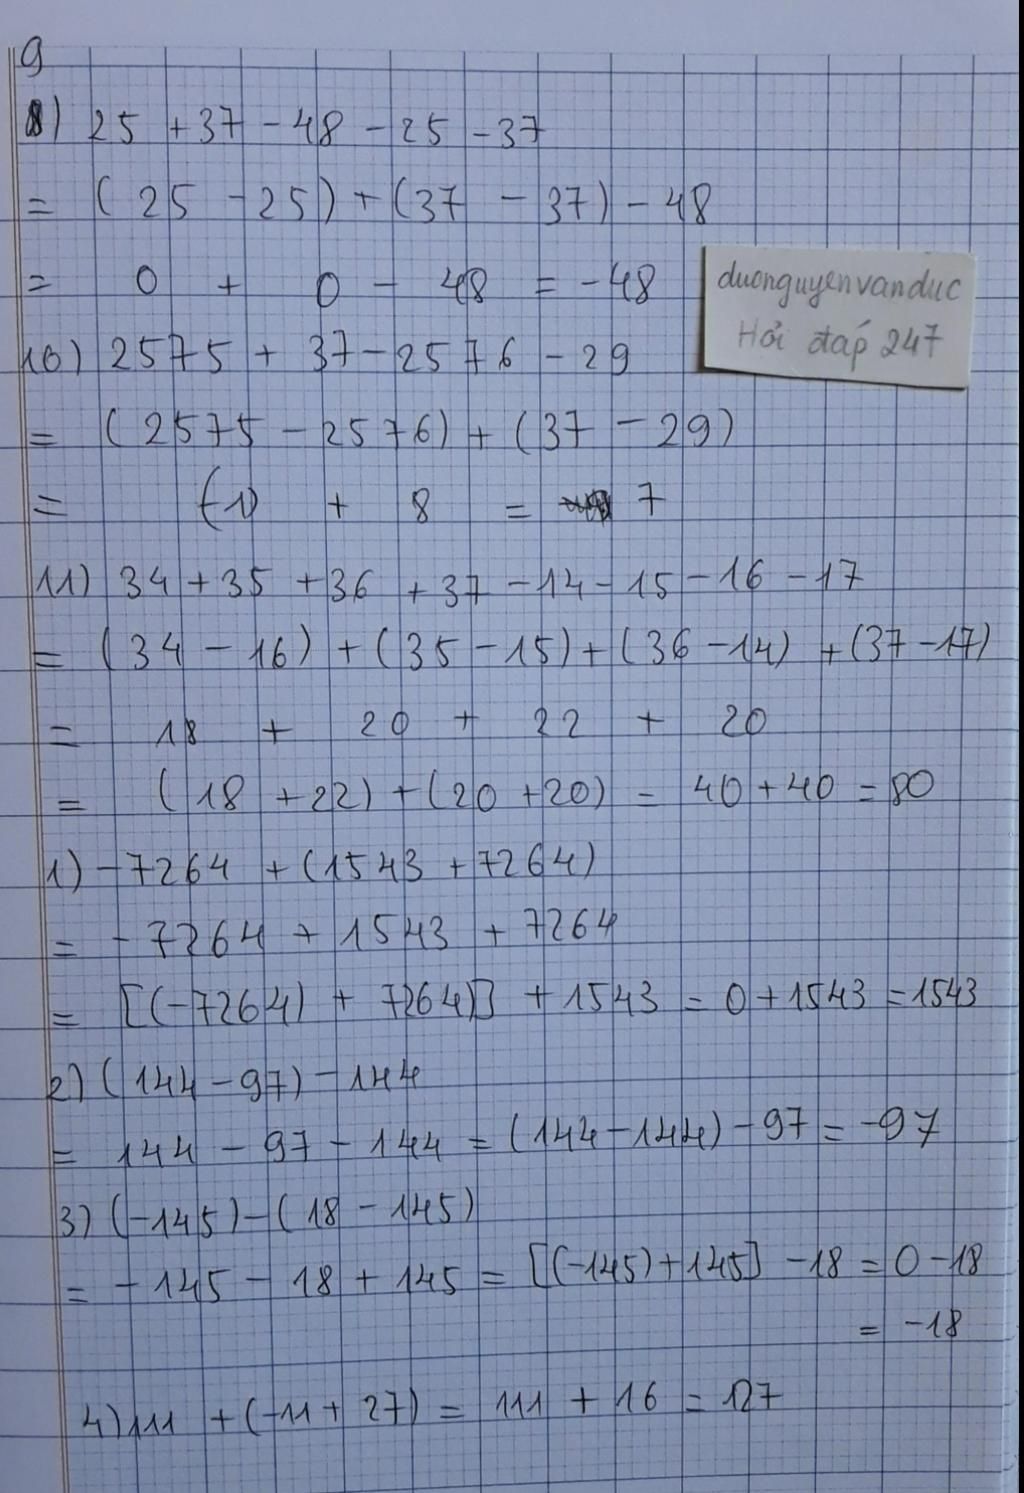 9
8) 25 + 37 - 48 - 25 - 37
= (25 - 25) + (37 - 37) - 48
= 0 + 0 - 48 = -48
duonguyenvanduc
Hỏi đáp 247
10) 2575 + 37 - 2576 - 29
= (2575 - 2576) + (37 - 29)
= (-1) + 8 = 7
11) 34 + 35 + 36 + 37 - 14 - 15 - 16 - 17
= (34 - 16) + (35 - 15) + (36 - 14) + (37 - 17)
= 18 + 20 + 22 + 20
= (18 + 22) + (20 + 20) = 40 + 40 = 80
1) -7264 + (1543 + 7264)
= -7264 + 1543 + 7264
= [(-7264) + 7264)] + 1543 = 0 + 1543 = 1543
2) (144 - 97) - 144
= 144 - 97 - 144 = (144 - 144) - 97 = -97
3) (-145) - (18 - 145)
= -145 - 18 + 145 = [(-145) + 145] - 18 = 0 - 18
= -18
4) 111 + (-11 + 27) = 111 + 16 = 127